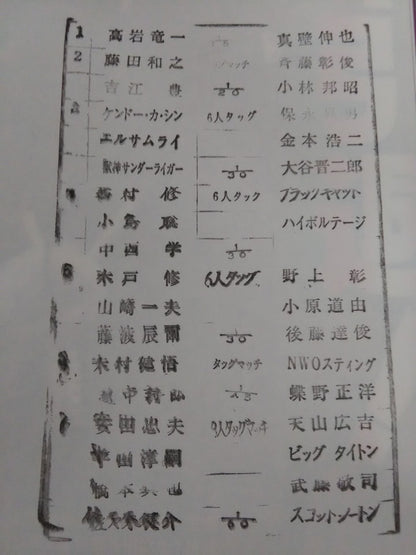 1 高岩竜一 1/15 真壁伸也
2 藤田和之 マッチ 斉藤彰俊
吉江豊 1/20 小林邦昭
ケンドー・カ・シン 6人タッグ 保永
エルサムライ 金本浩二
獣神サンダーライガー 1/30 大谷晋二郎
西村修 6人タッグ ブラックキャット
小島聡 ハイボルテージ
中西学 1/30
6 木戸修 6人タッグ 野上彰
山崎一夫 小原道由
藤波辰爾 1/30 後藤達俊
木村健悟 タッグマッチ NWOスティング
越中 蝶野正洋
安田忠夫 タッグマッチ 天山広吉
平田淳嗣 ビッグタイトン
橋本 武藤敬司
佐々木健介 1/60 スコットノートン